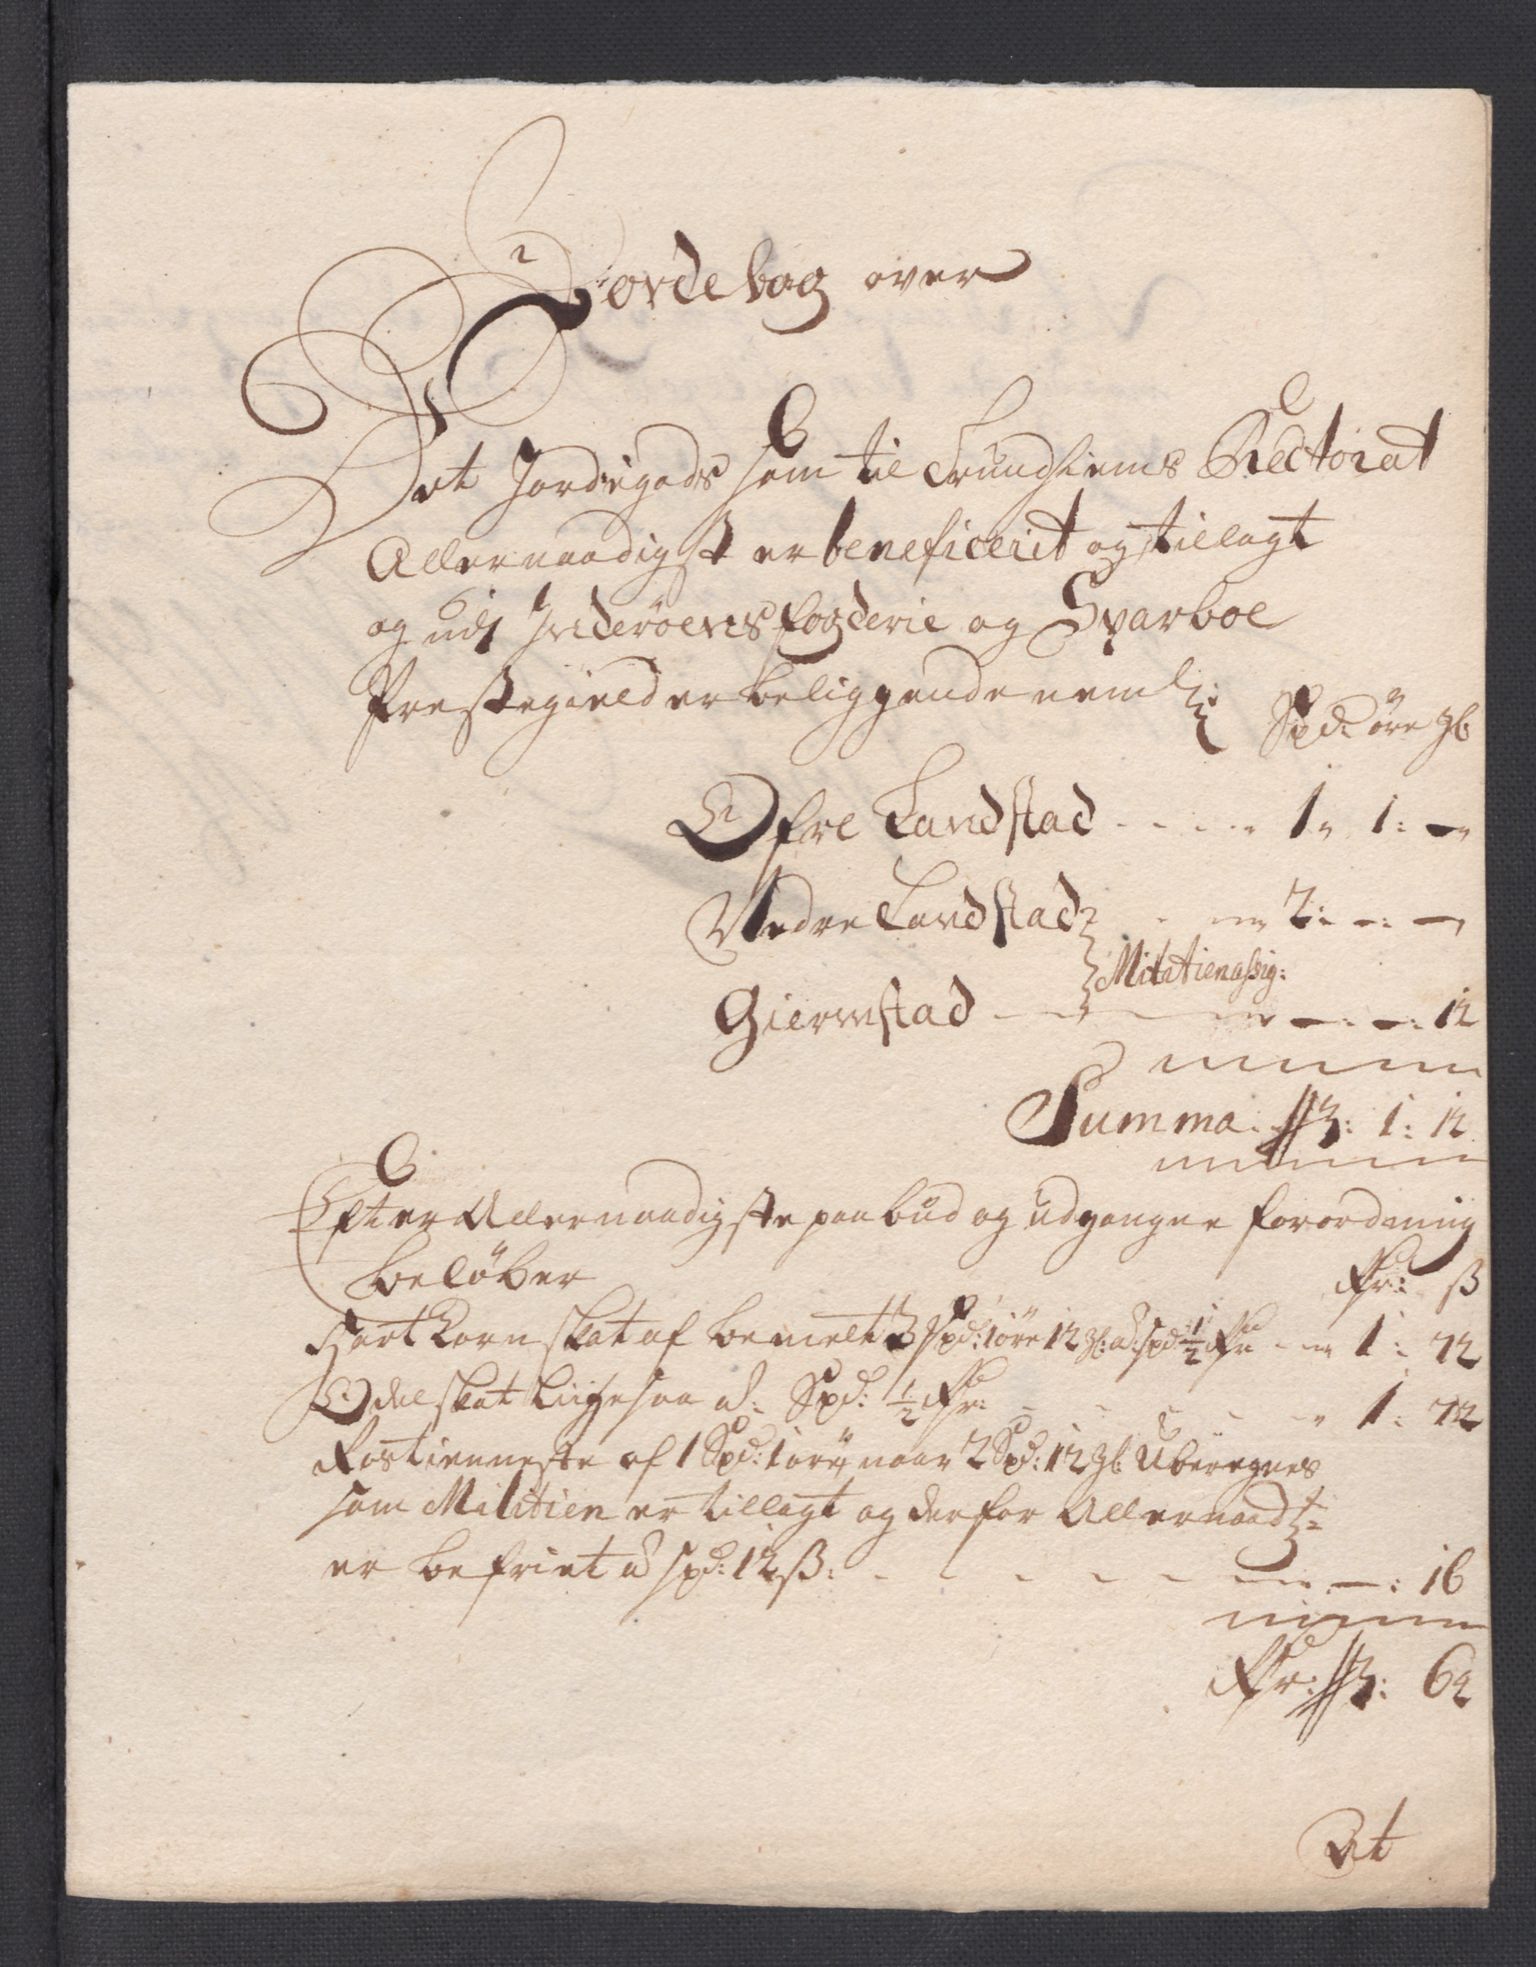 Jordebog over
Det Jordegods som til Trundhiems Rectorat
Allernaadigst er beneficerit og tillagt
og udj Inderöens fogderie og Sparboe
Prestegield er beliggende neml:
Spd: öre gl:
Öfre Landstad - - - - 1„ 1: —„
Nedre Landstad - - 2: —: —„
Militien assig:
Giermstad - - - —: —: 12
Summa 3: 1: 12
Efter Allernaadigste paabud og udgangne forordning
belöber
Rdr: ß
Hart Korn skat af bemelte 3 Spd: 1 öre 12 gl: a Spd: 1/2 Rdr - - 1: 72
Odelskat liigesaa a: Spd: 1/2 Rdr: - - - - 1: 72
Rostienneste af 1 Spd: 1 öre, naar 2 Spd: 12 gl: uberegnes
som Militien er tillagt og derfor Allernaadt:
er befriet a Spd: 12 ß: - - - - - —: 16
Rdr: 3: 64
Det